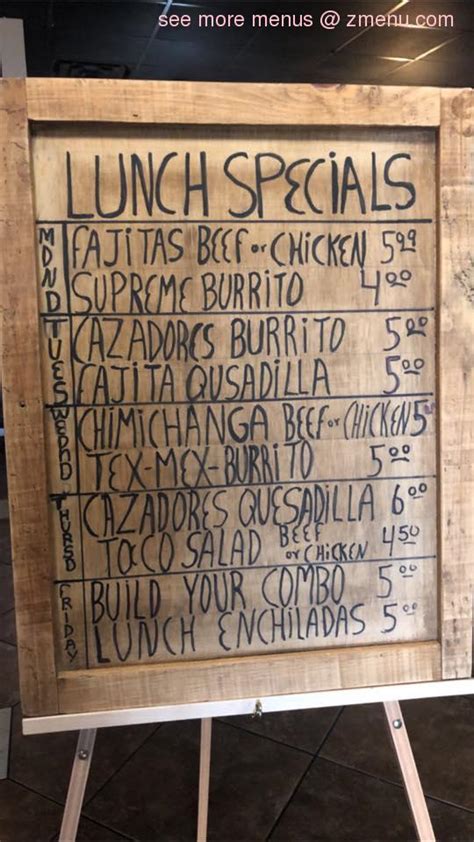 see more menus @ zmenu.com
LUNCH SPECIALS
MDND
FAJITAS BEEF or CHICKEN 5.99
SUPREME BURRITO 4.00
TUES
CAZADORES BURRITO 5.00
FAJITA QUSADILLA 5.00
CHIMICHANGA BEEF or CHICKEN 5
TEX-MEX-BURRITO 5.00
THURSD
CAZADORES QUESADILLA 6.00
TACO SALAD BEEF or CHICKEN 4.50
FRIDAY
BUILD YOUR COMBO 5.00
LUNCH ENCHILADAS 5.00